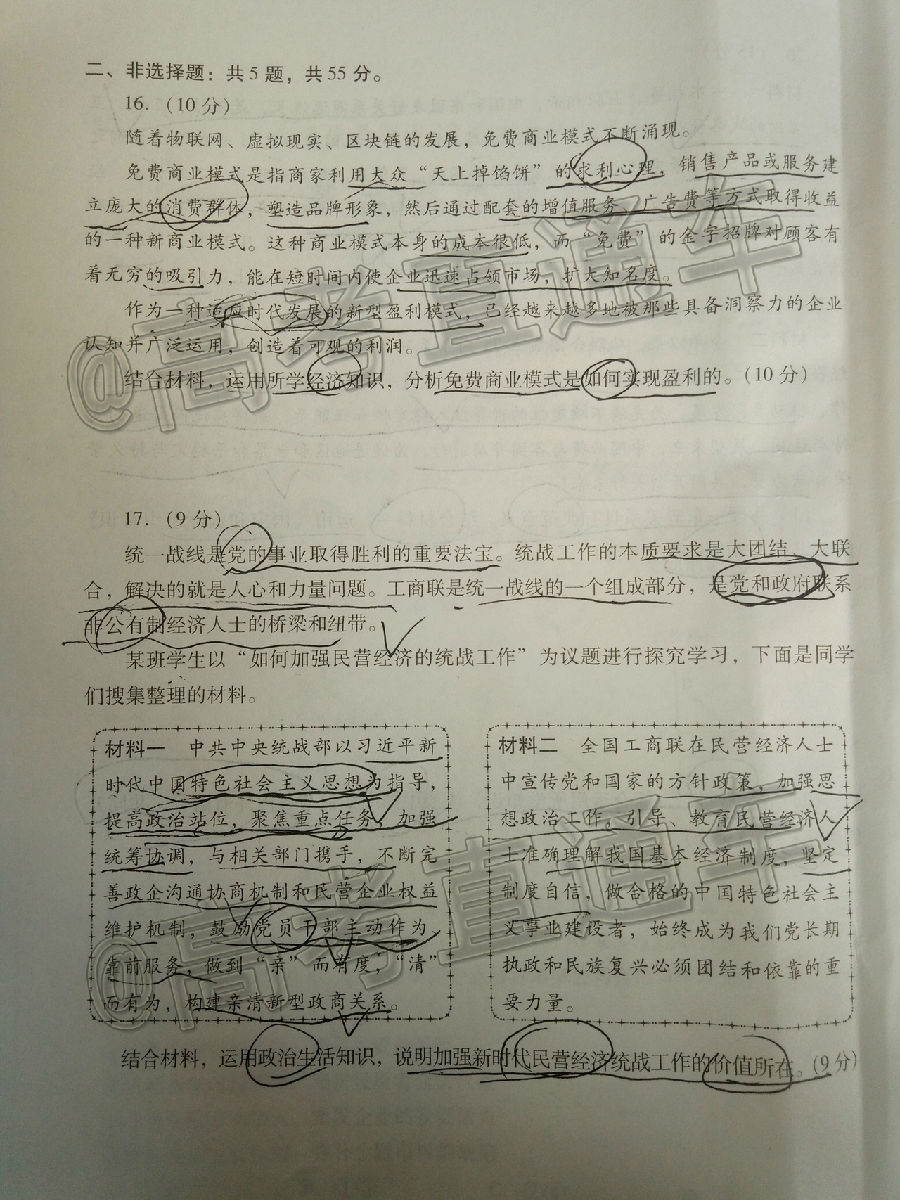 二、非选择题：共5题，共55分。
16.（10分）
随着物联网、虚拟现实、区块链的发展，免费商业模式不断涌现。
免费商业模式是指商家利用大众“天上掉馅饼”的求利心理，销售产品或服务建
立庞大的消费群体，塑造品牌形象，然后通过配套的增值服务、广告费等方式取得收益
的一种新商业模式。这种商业模式本身的成本很低，而“免费”的金字招牌对顾客有
着无穷的吸引力，能在短时间内使企业迅速占领市场，扩大知名度。
作为一种适应时代发展的新型盈利模式，已经越来越多地被那些具备洞察力的企业
认知并广泛运用，创造着可观的利润。
结合材料，运用所学经济知识，分析免费商业模式是如何实现盈利的。（10分）
17.（9分）
统一战线是党的事业取得胜利的重要法宝。统战工作的本质要求是大团结、大联
合，解决的就是人心和力量问题。工商联是统一战线的一个组成部分，是党和政府联系
非公有制经济人士的桥梁和纽带。
某班学生以“如何加强民营经济的统战工作”为议题进行探究学习，下面是同学
们搜集整理的材料。
材料一 中共中央统战部以习近平新
时代中国特色社会主义思想为指导，
提高政治站位，聚焦重点任务，加强
统筹协调，与相关部门携手，不断完
善政企沟通协商机制和民营企业权益
维护机制，鼓励党员干部主动作为
靠前服务，做到“亲”而有度，“清”
而有为，构建亲清新型政商关系。
材料二 全国工商联在民营经济人士
中宣传党和国家的方针政策，加强思
想政治工作，引导、教育民营经济人
士准确理解我国基本经济制度，坚定
制度自信，做合格的中国特色社会主
义事业建设者，始终成为我们党长期
执政和民族复兴必须团结和依靠的重
要力量。
结合材料，运用政治生活知识，说明加强新时代民营经济统战工作的价值所在。（9分）
@高考直通车
@高考直通车